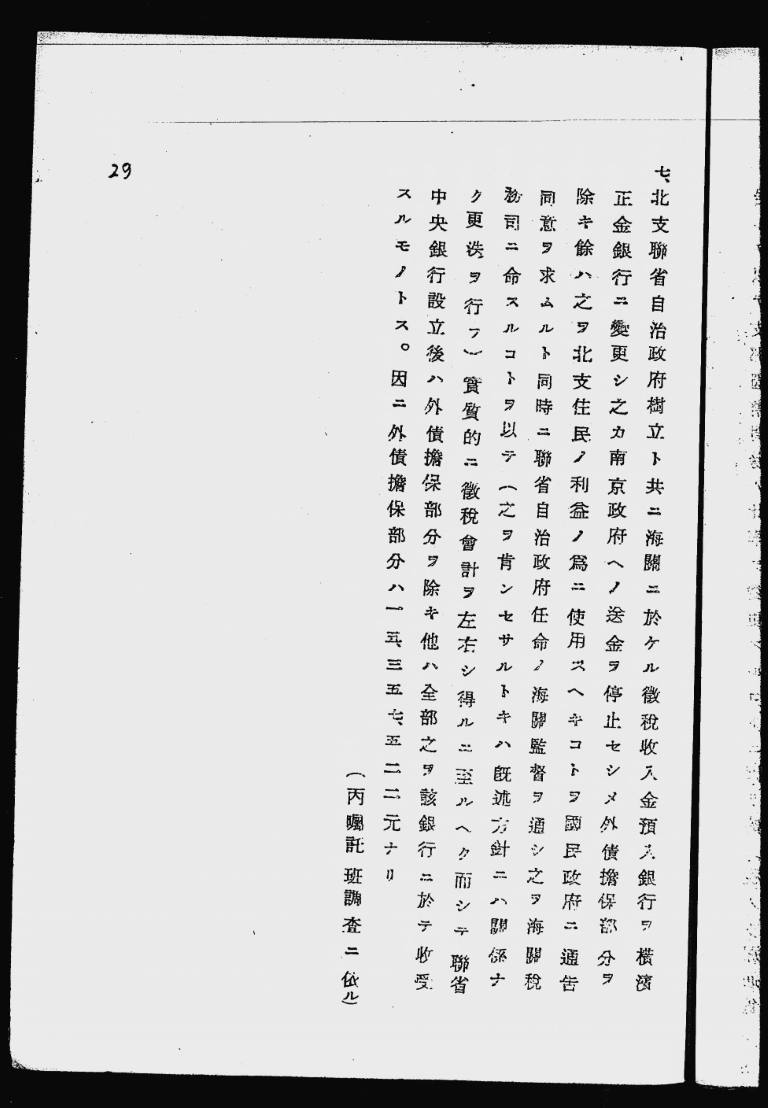 七、北支聯省自治政府樹立ト共ニ海關ニ於ケル徵稅收入金預入銀行ヲ橫濱
正金銀行ニ變更シ之カ南京政府ヘノ送金ヲ停止セシメ外債擔保部分ヲ
除キ餘ハ之ヲ北支住民ノ利益ノ爲ニ使用スヘキコトヲ國民政府ニ通告
同意ヲ求ムルト同時ニ聯省自治政府任命ノ海關監督ヲ通シ之ヲ海關稅
務司ニ命スルコトヲ以テ(之ヲ肯ンセサルトキハ旣述方針ニハ關係ナ
ク更迭ヲ行フ)實質的ニ徵稅會計ヲ左右シ得ルニ至ルヘク而シテ聯省
中央銀行設立後ハ外債擔保部分ヲ除キ他ハ全部之ヲ該銀行ニ於テ收受
スルモノトス。因ニ外債擔保部分ハ一五、三五七、五二二元ナリ
(丙囑託班調査ニ依ル)
29